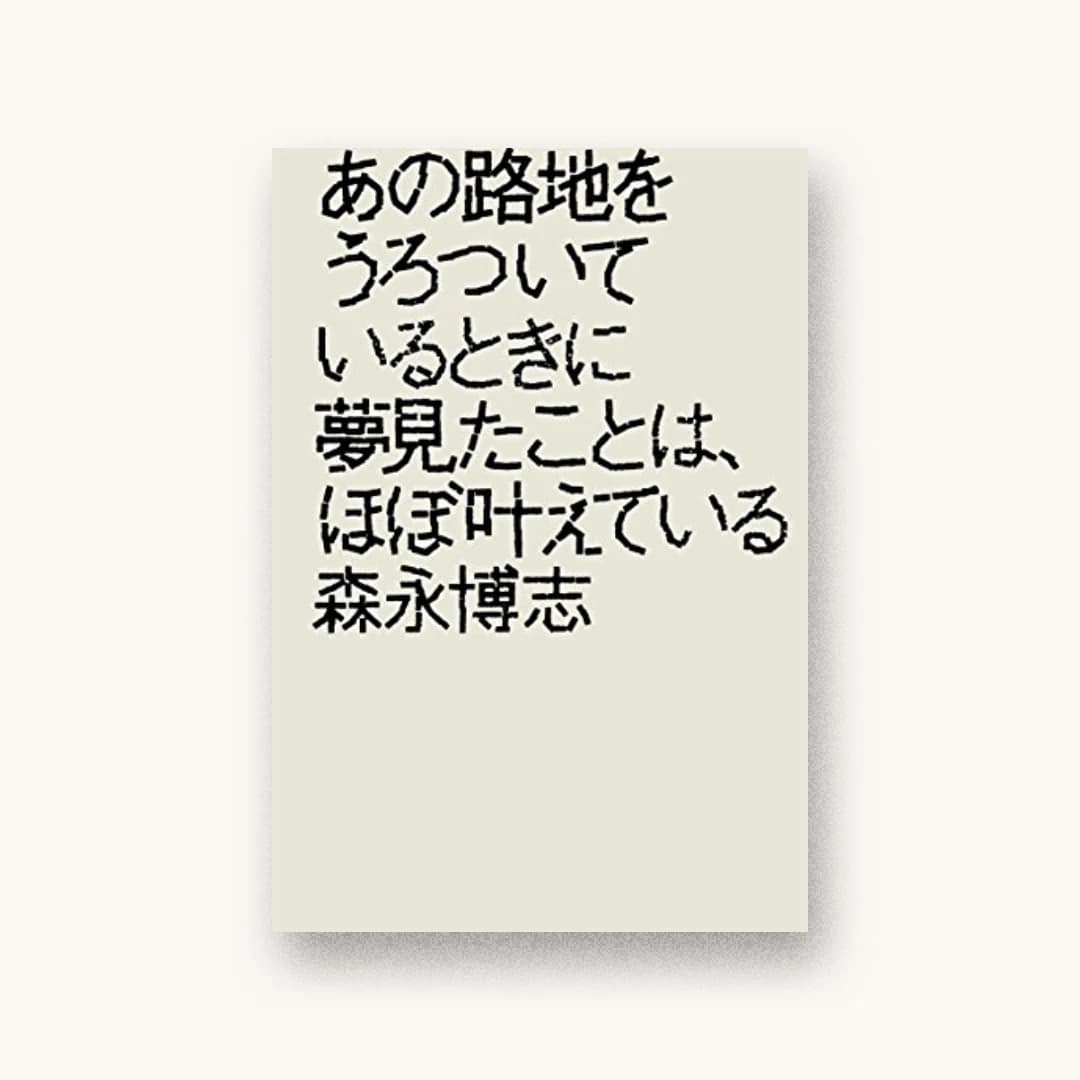 あの路地を
うろついて
いるときに
夢見たことは、
ほぼ叶えている
森永博志